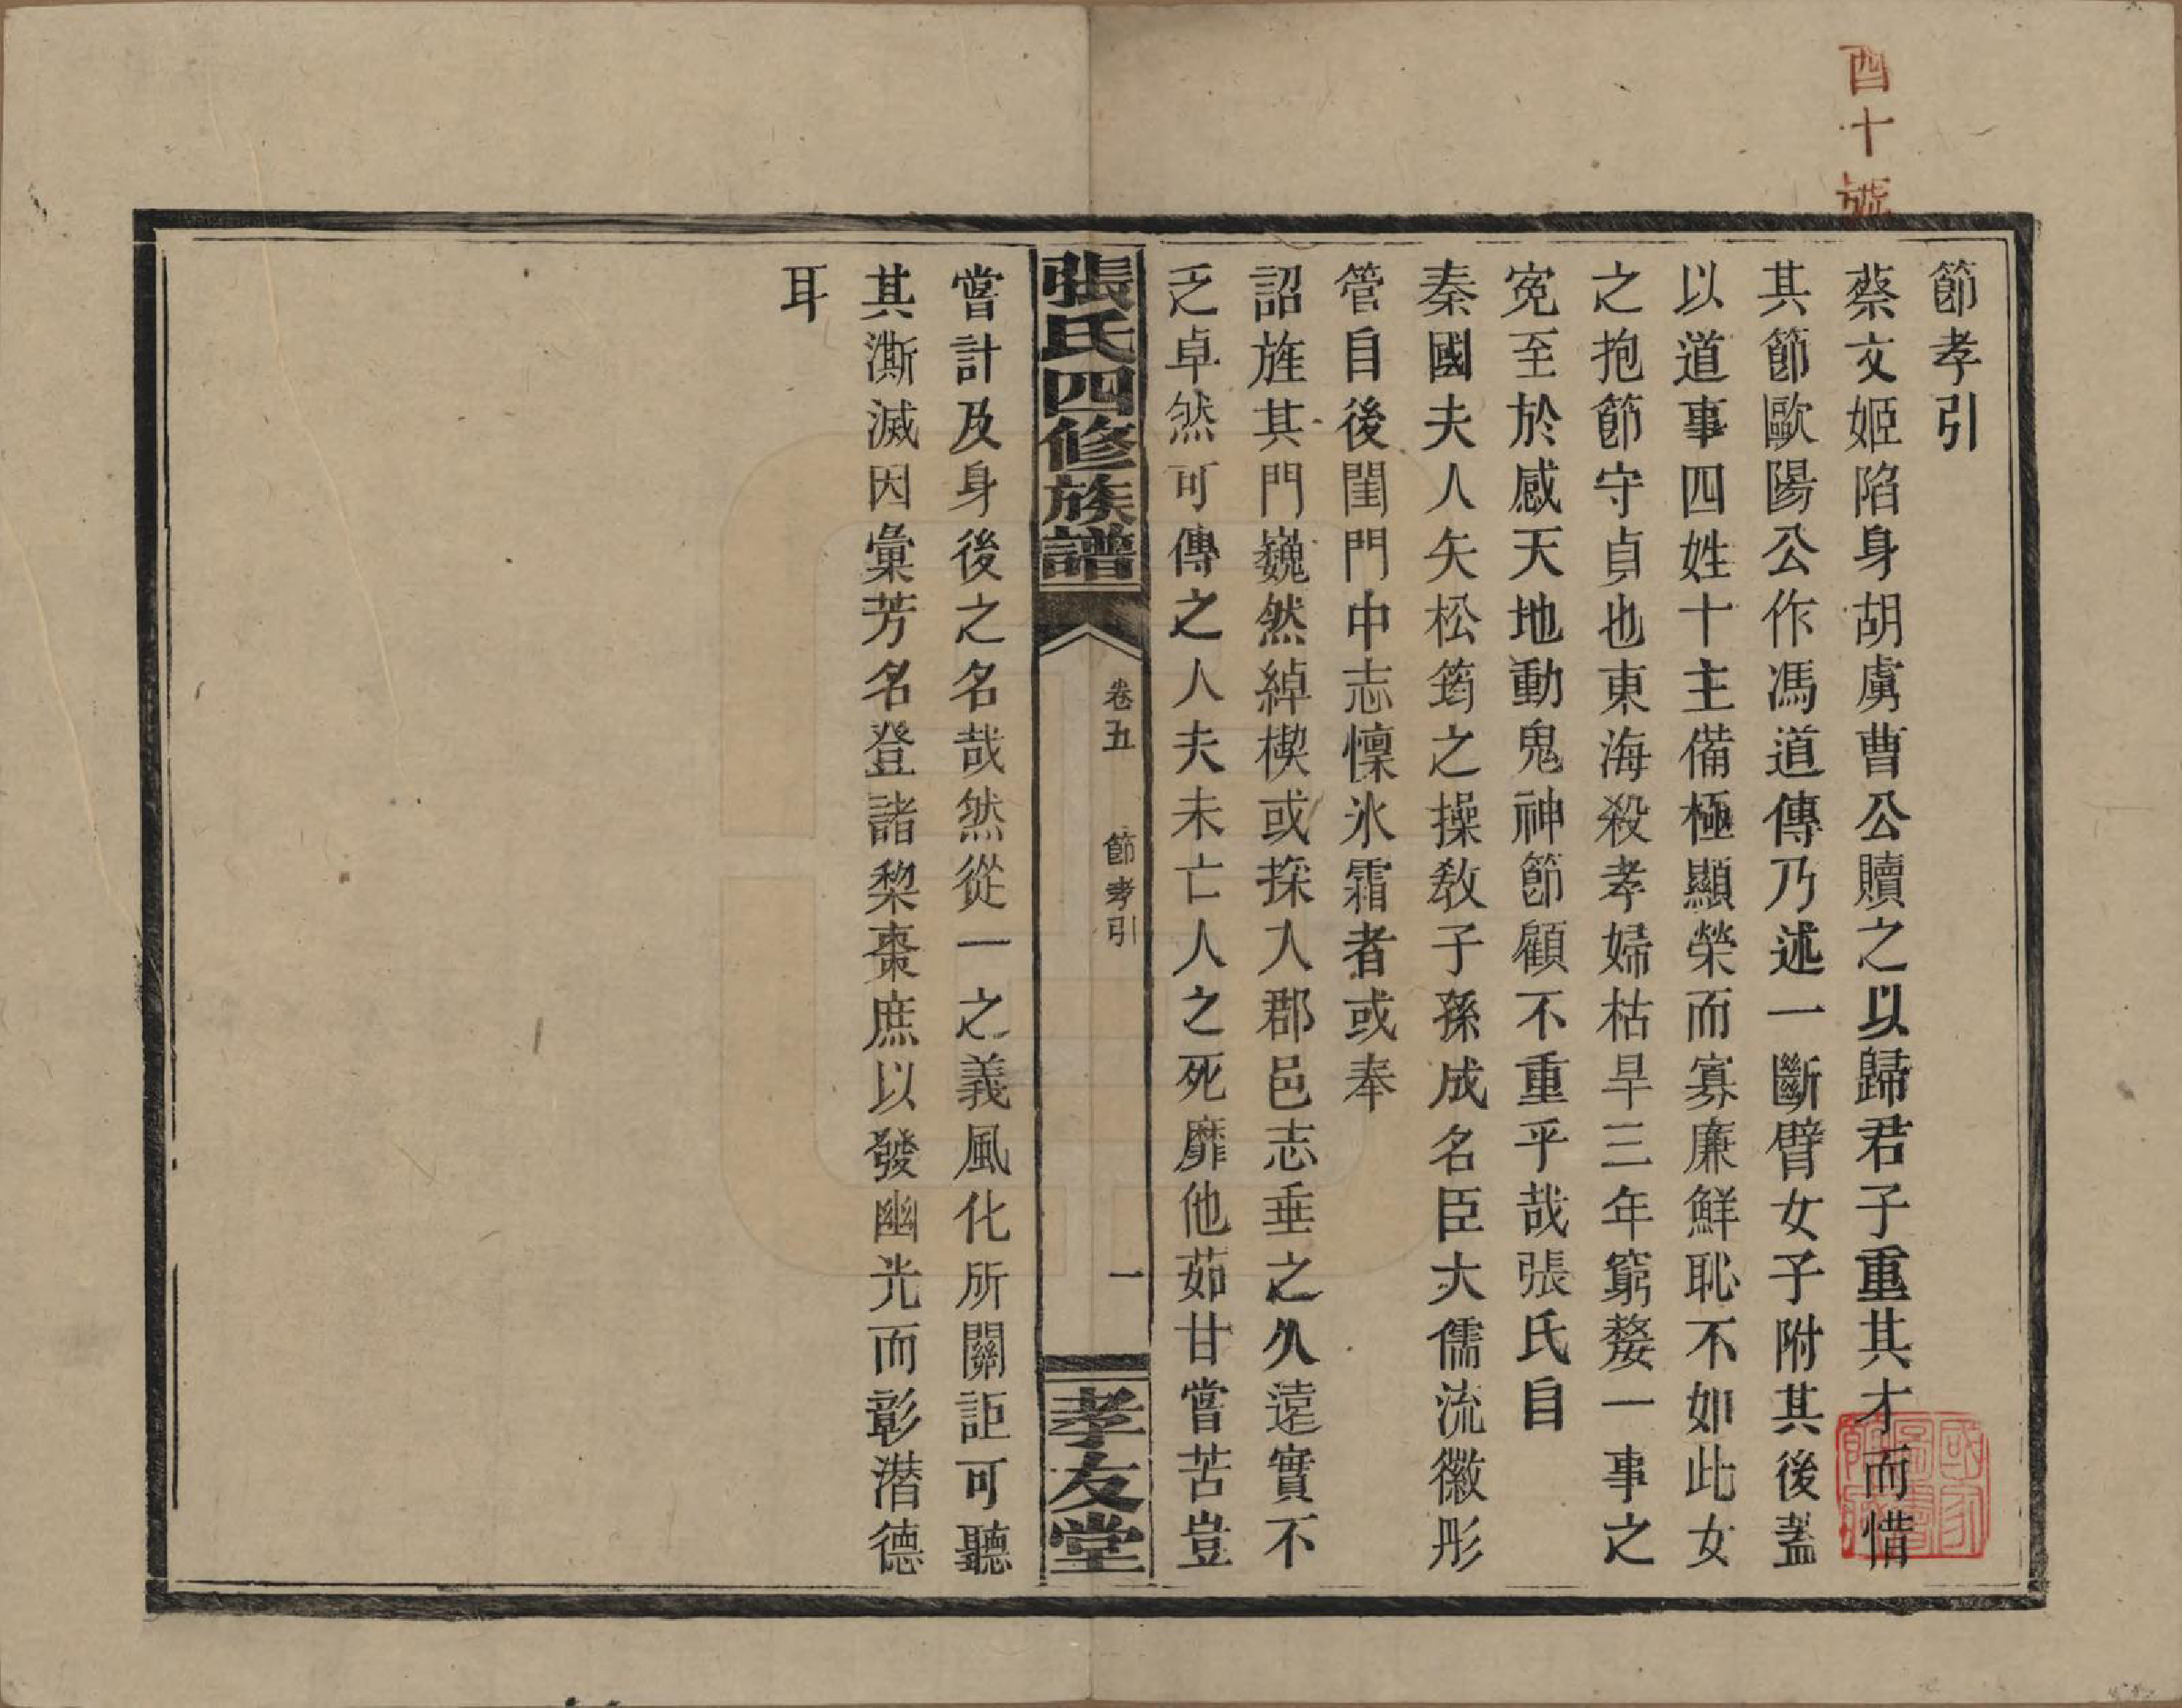 酉十號
節孝引
蔡文姬陷身胡虜曹公贖之以歸君子重其才而惜
其節歐陽公作馮道傳乃述一斷臂女子附其後蓋
以道事四姓十主備極顯榮而寡廉鮮恥不如此女
之抱節守貞也東海殺孝婦枯旱三年窮嫠一事之
寃至於感天地動鬼神節顧不重乎哉張氏自
秦國夫人矢松筠之操教子孫成名臣大儒流徽彤
管自後閨門中志懍氷霜者或奉
詔旌其門巍然綽楔或採入郡邑志垂之久遠實不
乏卓然可傳之人夫未亡人之死靡他茹甘嘗苦豈
張氏四修族譜
卷五
節孝引
一
孝友堂
嘗計及身後之名哉然從一之義風化所關詎可聽
其澌滅因彙芳名登諸棃棗庶以發幽光而彰潛德
耳
國家圖書館藏